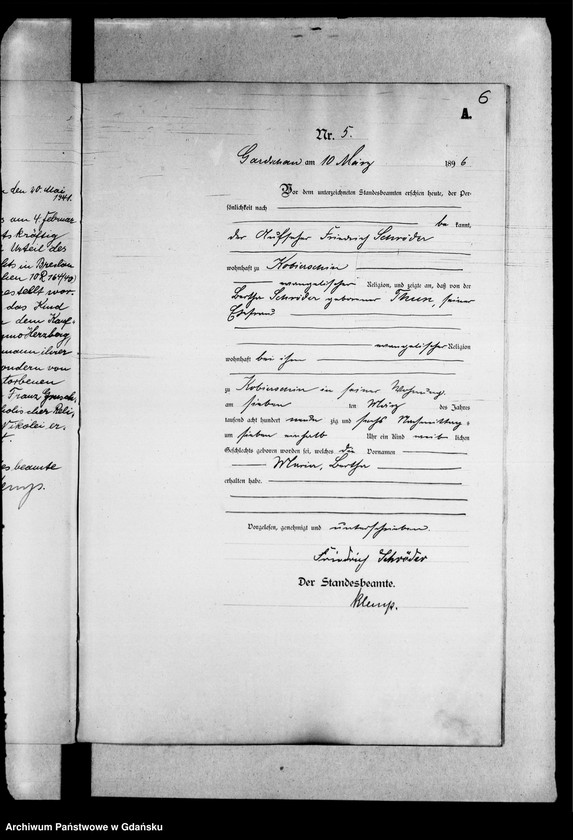 6
A.
Nr. 5.
Gardschau am 10 März 1896
Vor dem unterzeichneten Standesbeamten erschien heute, der Per-
sönlichkeit nach
be kannt,
der Aufseher Friedrich Schröder
wohnhaft zu Kobierschin
evangelischer Religion, und zeigte an, daß von der
Bertha Schröder geborener Thun, seiner
Ehefrau
evangelischer Religion
wohnhaft bei ihm
zu Kobierschin in seiner Wohnung
am sieben ten März des Jahres
tausend acht hundert neun zig und sechs Nachmittags
um sieben einhalb Uhr ein Kind weib lichen
Geschlechts geboren worden sei, welches die Vornamen
Maria, Bertha
erhalten habe.
Vorgelesen, genehmigt und unterschrieben.
Friedrich Schröder
Der Standesbeamte.
Klemp.
den 20. Mai
1941.
am 4. Februar
Urteil des
in Breslau
10R 164/40)
gestellt wor-
das Kind
dem Kauf-
Herzberg,
mann ihrer
sondern von
torbenen
Franz
Nikolai er-
beamte
Archiwum Państwowe w Gdańsku